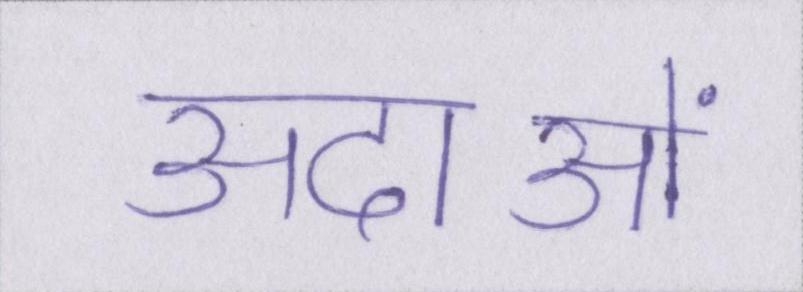 अदाओं